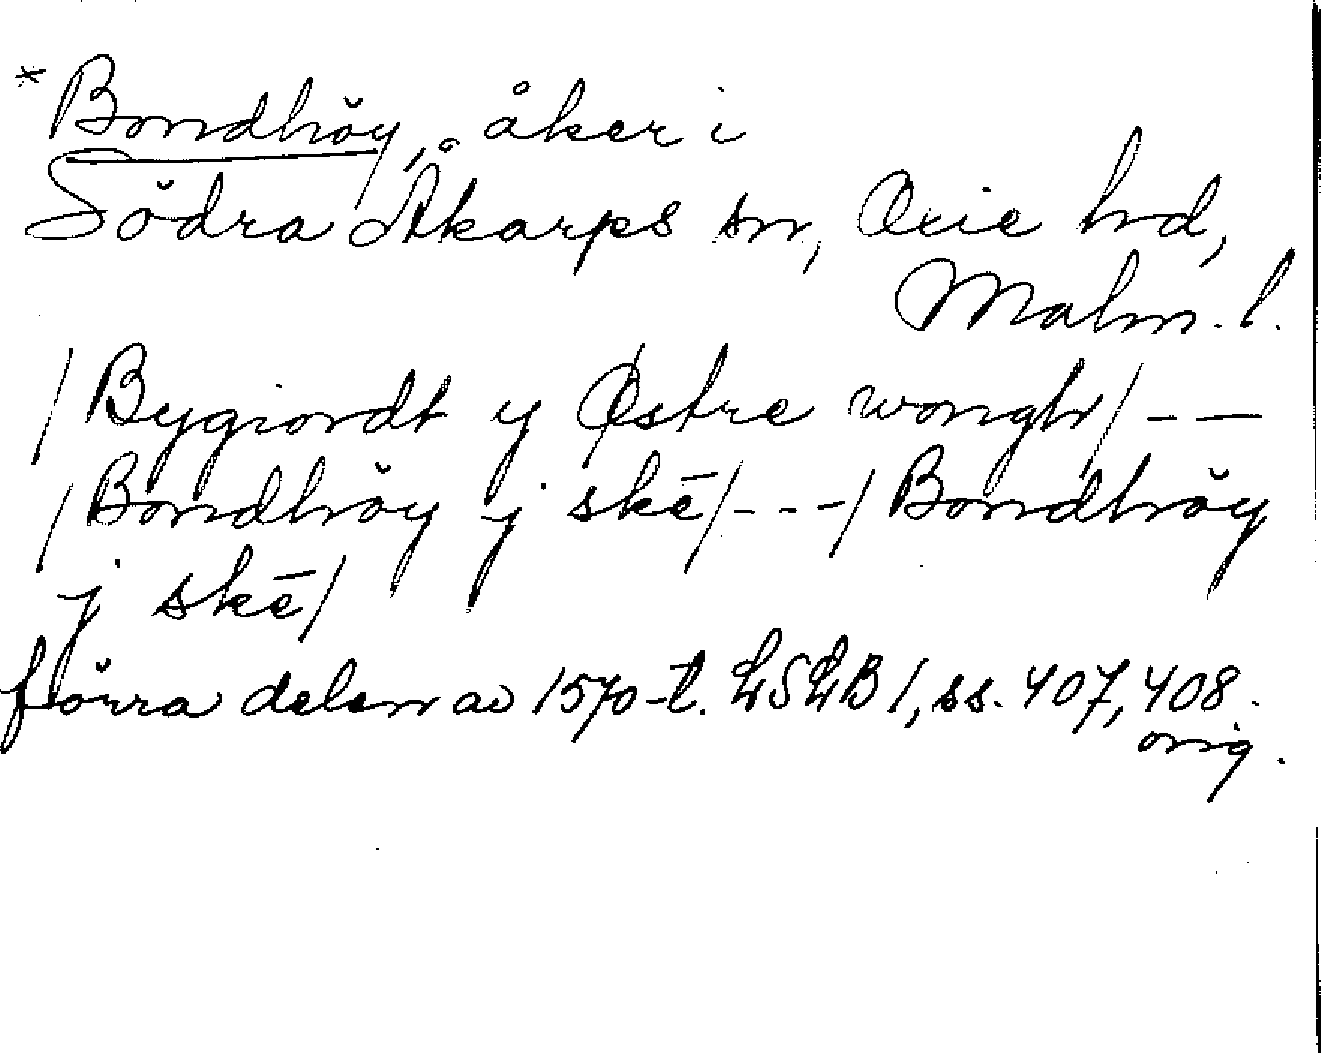 *Bondhöy, åker i
Södra Åkarps sn, Oxie hd,
Malm. l.
/Bygiordt y Østre wongh/ - -
/Bondhöy y skē/ - - - / Bondhöy
j skē/
förra delen av 1570-t. LSLB 1, ss. 407, 408.
orig.